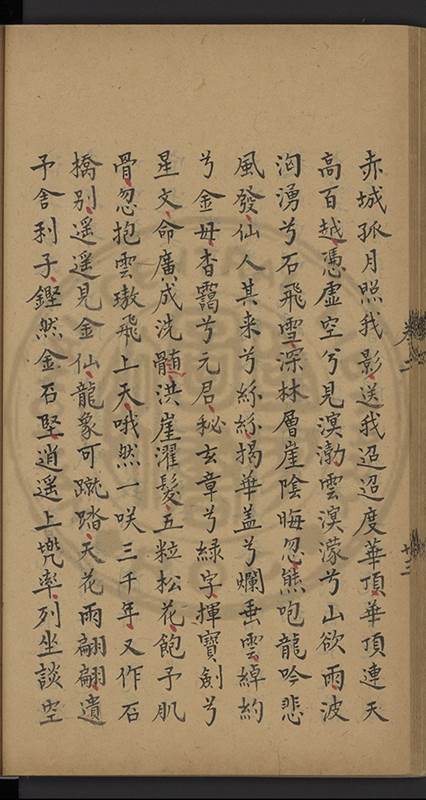 赤城孤月照我影送我迢迢度華頂華頂連天
高百越憑虛空兮見溟渤雲溟濛兮山欲雨波
洶湧兮石飛雪深林層崖陰晦忽熊咆龍吟悲
風發仙人其来兮絲絲揭華盖兮爛垂雲綽約
兮金母杳靄兮元君秘玄章兮綠字揮寶劍兮
星文命廣成洗髓洪崖濯髮五粒松花飽予肌
骨忽抱雲璈飛上天哦然一咲三千年又作石
橋别遥遥見金仙龍象可蹴踏天花雨翩翩遺
予舍利子鏗然金石堅逍遥上兠率列坐談空